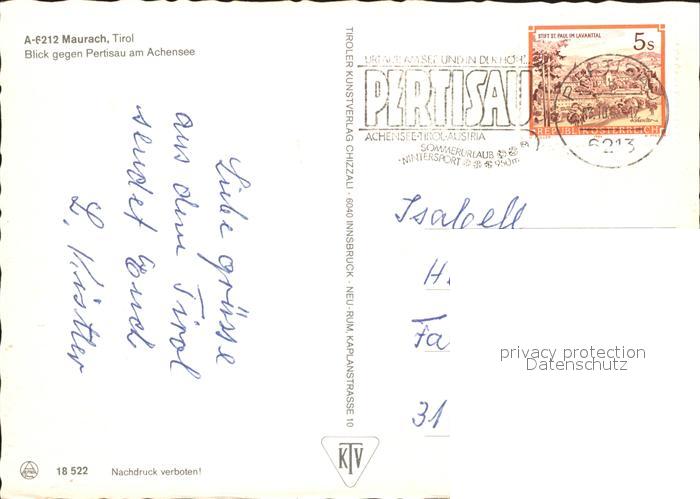 A-6212 Maurach, Tirol
Blick gegen Pertisau am Achensee
Liebe grüsse
aus dem Tirol
sendet Euch
L. Kistler
18 522 Nachdruck verboten!
TIROLER KUNSTVERLAG CHIZZALI · 6040 INNSBRUCK - NEU-RUM, KAPLANSTRASSE 10
KTV
URLAUB AM SEE UND IN DER HÖH
PERTISAU
ACHENSEE-TIROL-AUSTRIA
SOMMERURLAUB
WINTERSPORT 950m
STIFT ST. PAUL IM LAVANTTAL
5 S
REPUBLIK ÖSTERREICH
6213
Isabell
H.
Fa
31
privacy protection
Datenschutz